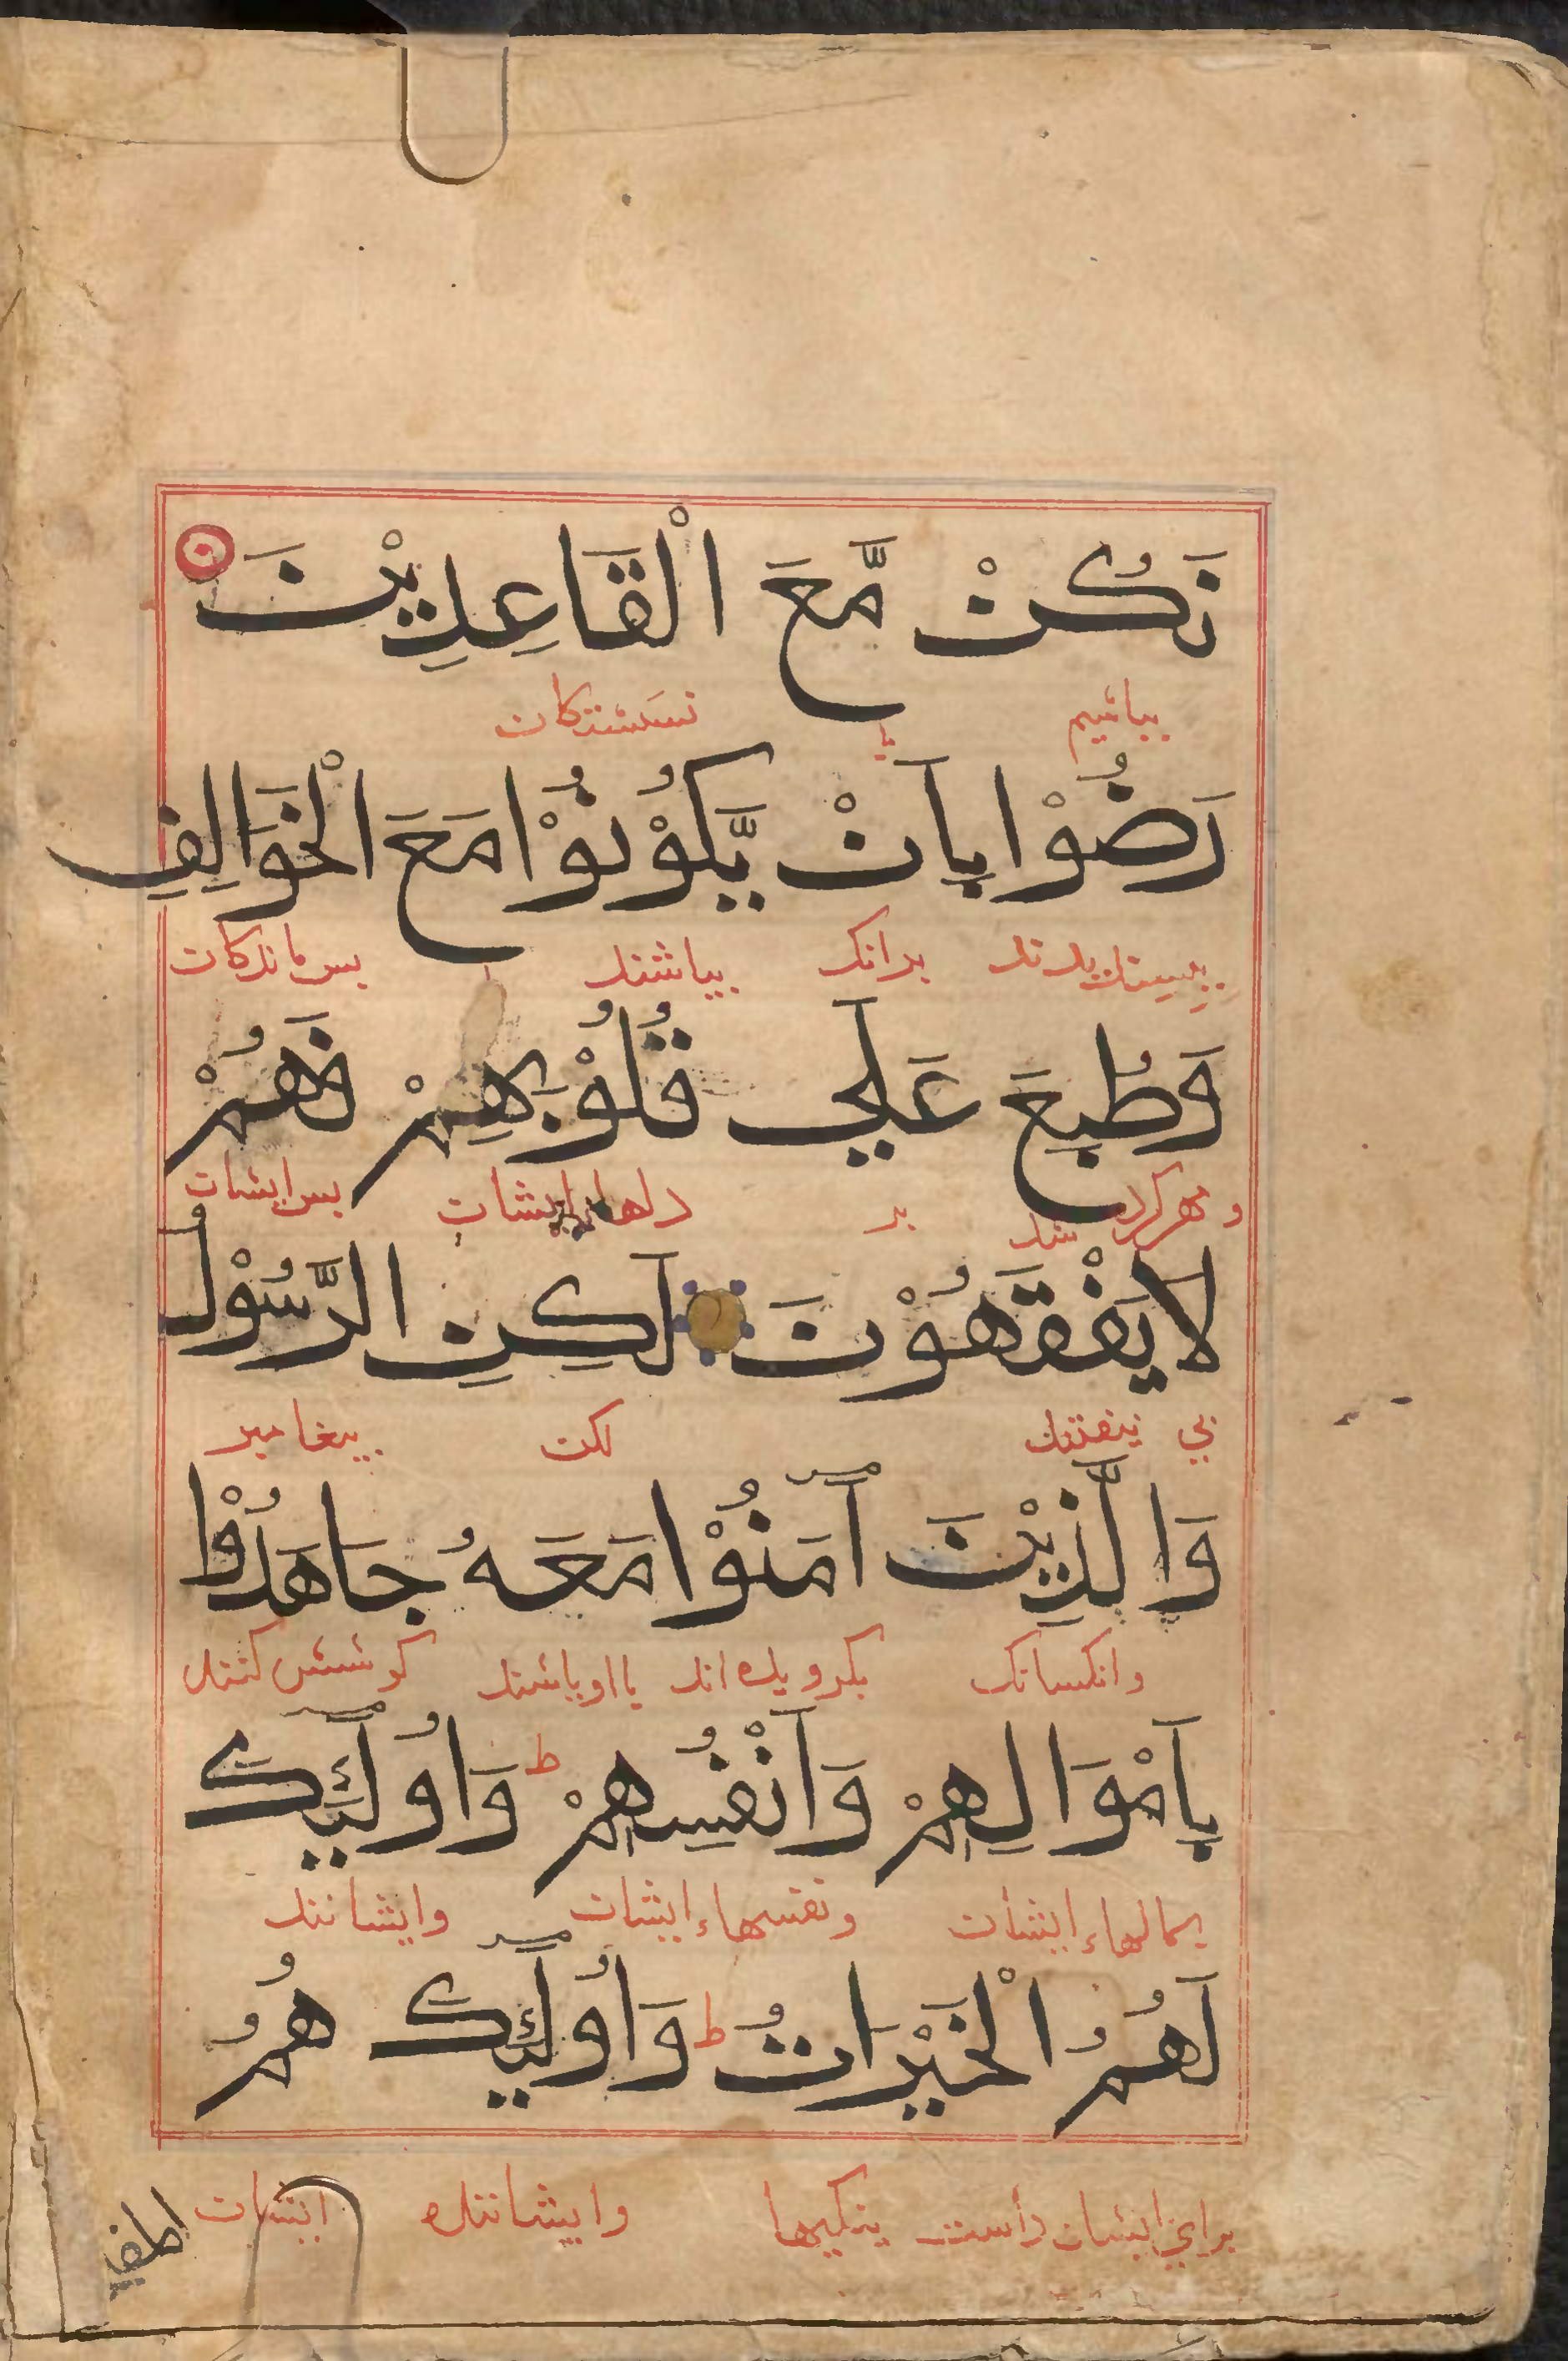 نَكُنْ مَّعَ الْقَاعِدِيْنَ
بباشيم با نشستكان
رَضُوْا بِاَنْ يَّكُوْنُوْا مَعَ الْخَوَالِفِ
بدانك بباشند با بس ماندكان
وَطُبِعَ عَلَي قُلُوْبِهِمْ فَهُمْ
و مهر كرد شد بر دلهاء ايشان بس ايشان
لَا يَفْقَهُوْنَ لَكِنِ الرَّسُوْلُ
ني لكن بيغامبر
وَالَّذِيْنَ آمَنُوْا مَعَهُ جَاهَدُوْا
وانكسانك بكرويده اند با او باشند كوشش كنند
بِاَمْوَالِهِمْ وَاَنْفُسِهِمْ ط وَاُولٰٓئِكَ
بمالهاء ايشان ونفسهاء ايشان وايشانند
لَهُمُ الْخَيْرَاتُ ط وَاُولٰٓئِكَ هُمُ
براي ايشان راست نيكيها وايشانند ايشان
المفـ